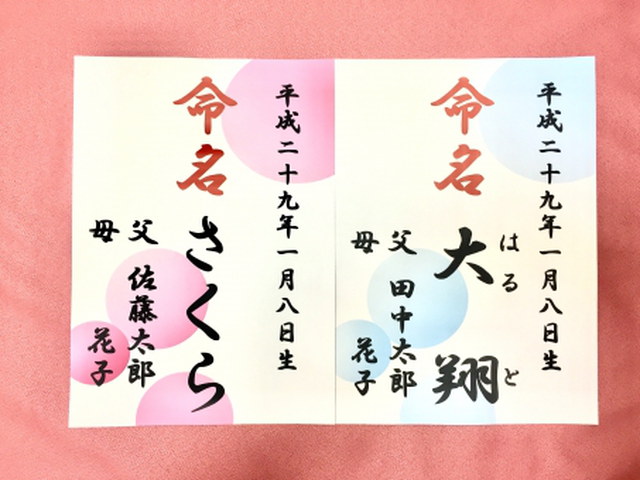 平成二十九年一月八日生
はると
命名
大翔
父 田中太郎
母 花子
平成二十九年一月八日生
命名
さくら
父 佐藤太郎
母 花子